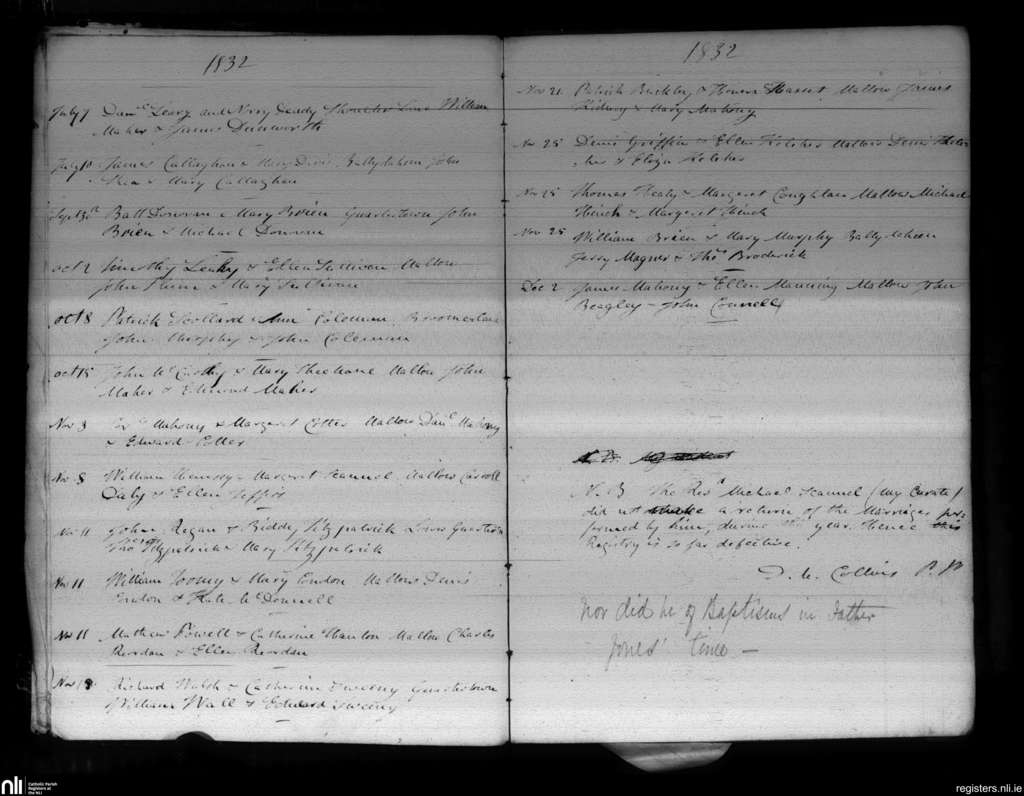 1832
July 7 Danl Leary and Nory Deady Shoulder Lane William
Maher & James Dunworth
July 10 James Callaghan & Mary Ballydahin John
Shea & Mary Callaghan
Sept 30th Batt Donovan & Mary Brien Quartertown John
Brien & Michael Donovan
Oct 2 Timothy Leahy & Ellen Sullivan Mallow
John & Mary Sullivan
Oct 8 Patrick Scollard & Ann Coleman
John Murphy & John Coleman
Oct 15 John McCarthy & Mary Sheehane Mallow John
Maher & Edmond Maher
Nov 3 Mahony & Margaret Cotter Mallow Danl Mahony
& Edward Cotter
Nov 8 William & Margaret Scannel Mallow Carroll
Daly & Ellen
Nov 11 John Regan & Biddy Fitzpatrick
Fitzpatrick & Mary Fitzpatrick
Nov 11 William Toomy & Mary Condon Mallow Denis
Condon & Kate McDonnell
Nov 11 Mathew Powell & Catherine Hanlon Mallow Charles
Reordan & Ellen Reordan
Nov Richard Walsh & Catherine Sweeny Quartertown
William Wall & Edward Sweeny
1832
Nov 21 Patrick Buckley & Honora Mallow James
& Mary Mahony
Nov 25 Denis Griffin & Ellen Kelcher Mallow Denis Kelcher
& Eliza Kelcher
Nov 25 Thomas Healy & Margaret Coughlan Mallow Michael
Hinch & Margaret Hinch
Nov 25 William Brien & Mary Murphy Ballydahin
Jerry Magner & Thos Broderick
Dec 2 James Mahony & Ellen Manning Mallow John
Beagley & John Connell
N.B The Revd Michael Scannel (my Curate)
did not make a return of the Marriages per-
formed by him, during this year. Hence this
Registry is so far defective.
D. M. Collins P.P
Nor did he of Baptisms in Father
Jones' time —
nli
Catholic Parish
Registers at
the NLI
registers.nli.ie